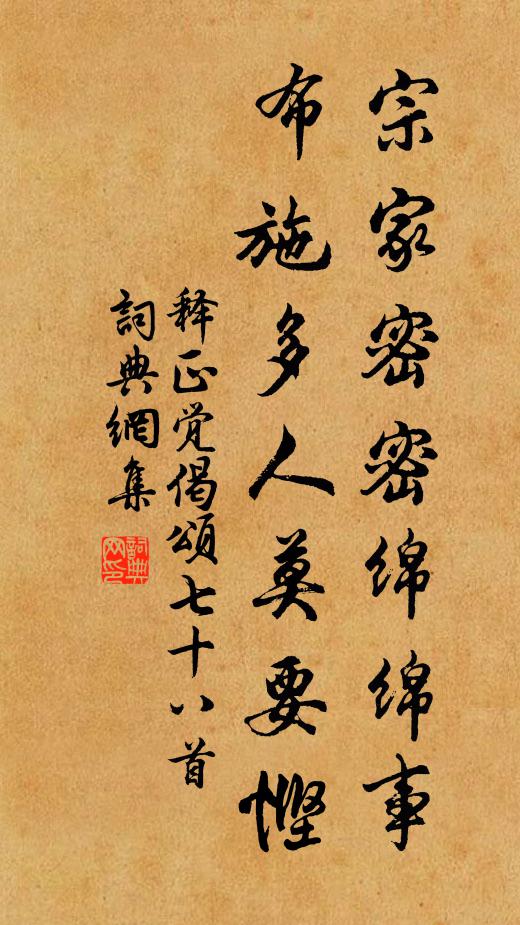 宗家密密绵绵事
布施多人莫要悭
释正觉偈颂七十八首
詞典網集
詞典网印